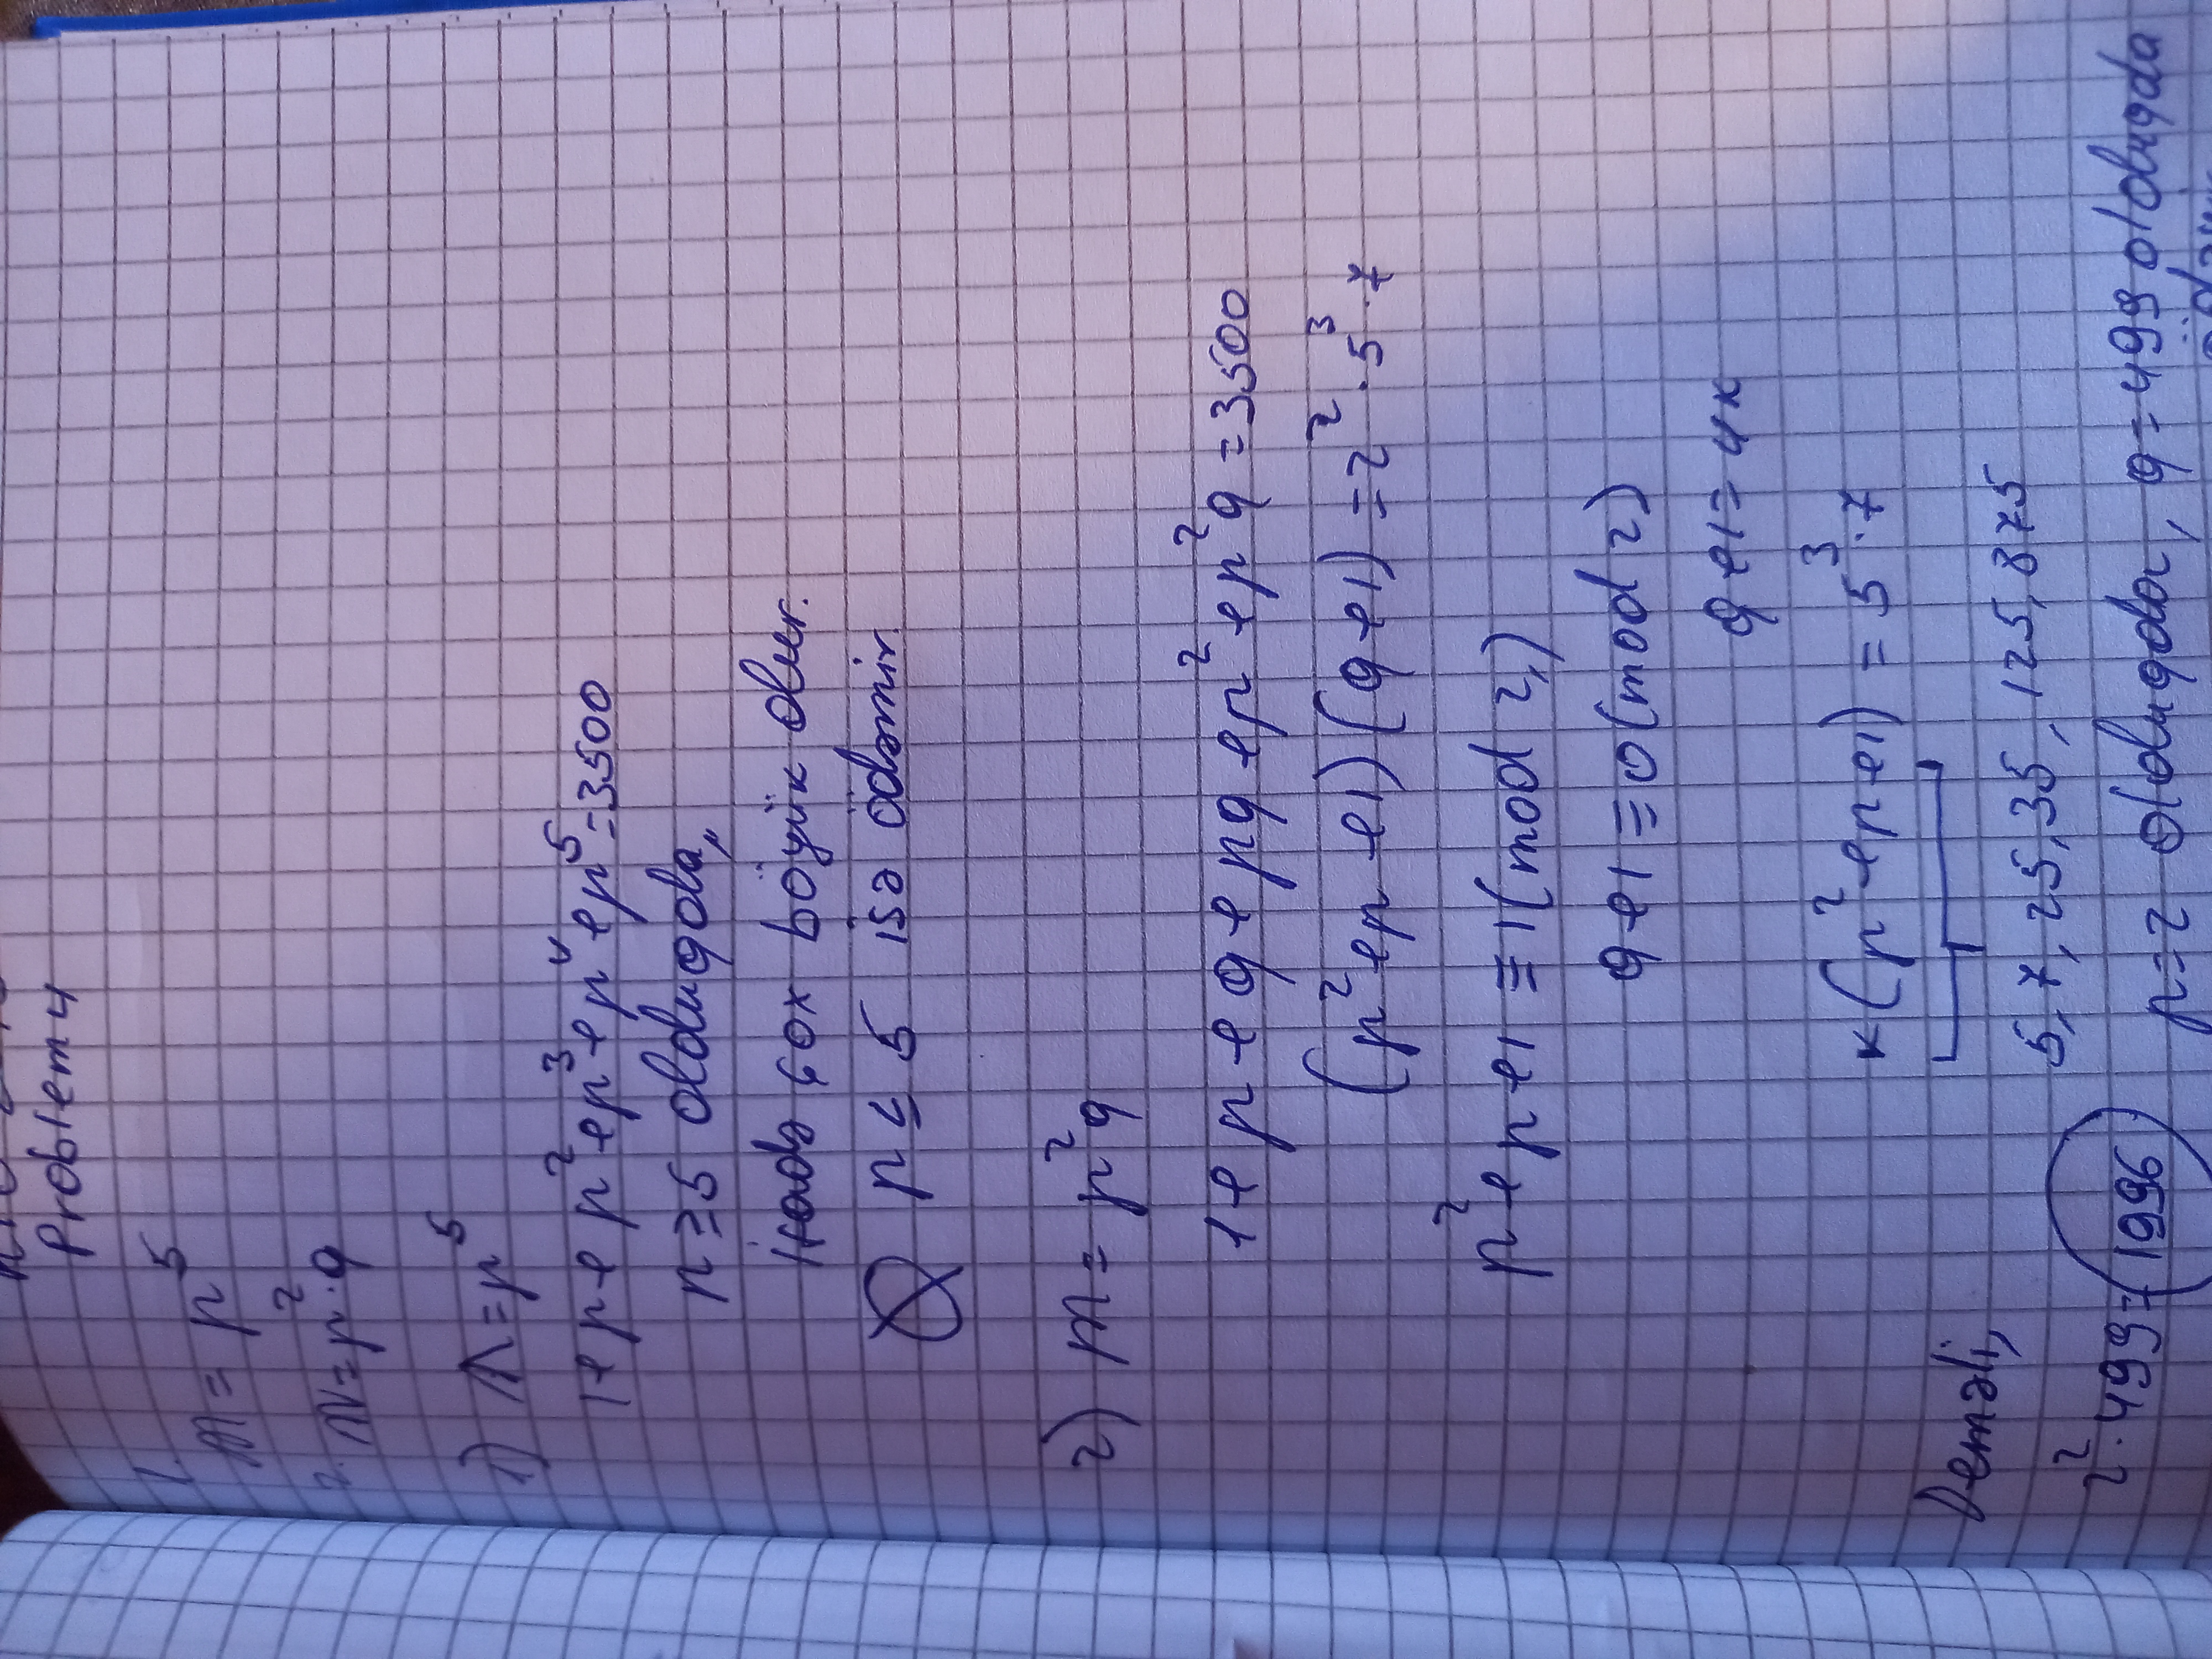 Problem 4
1. m = p⁵
2. N = p²·q
1) n = p⁵
1+p+p²+p³+p⁴+p⁵=3500
p≥5 olduqda,
ifadə çox böyük olur.
p ≤ 5 isə ödəmir.
2) m = p²q
1+p+q+pq+p²+p²q=3500
(p²+p+1)(q+1)=2²·5³·7
p²+p+1≡1(mod 2)
q+1≡0(mod 2)
q+1=4k
k(p²+p+1)=5³·7
5, 7, 25, 35, 125, 875
Deməli,
p=2 olduqda, q=499 olduqda
2²·499=1996